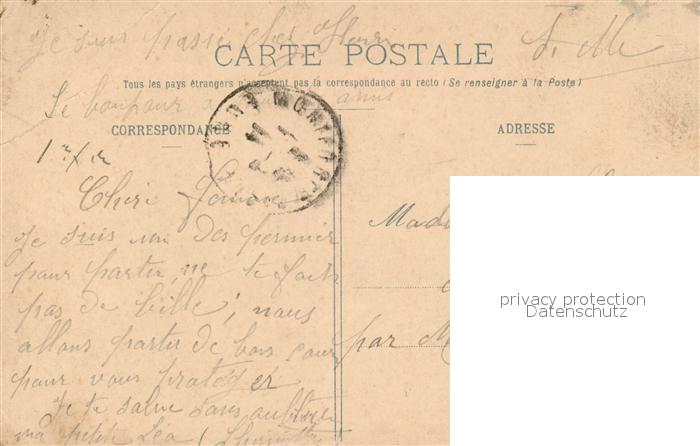 Je suis passé chez Henri
CARTE POSTALE
Tous les pays étrangers n'acceptent pas la correspondance au recto (Se renseigner à la Poste)
Le bonjour a amis
CORRESPONDANCE
ADRESSE
Cheri
Je suis un des permier
pour partir, ne te fait
pas de bille, nous
allons partir de bon cœur
pour vous protéger
Je te salue sans oublier
ma petite Léa
Mad
par M
privacy protection
Datenschutz